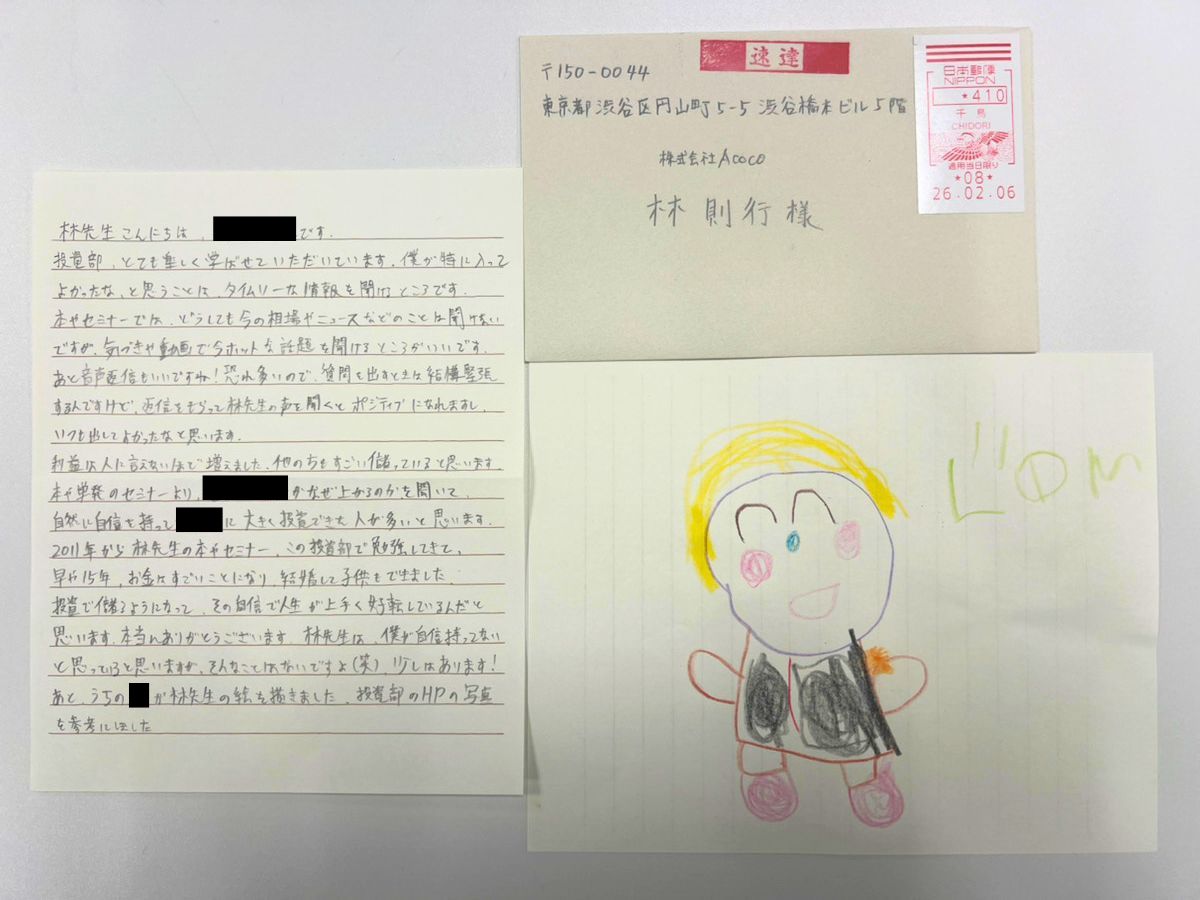 林先生こんにちは、
です。
投資部、とても楽しく学ばせていただいています。僕が特に入って
よかったな、と思うことは、タイムリーな情報を聞けるところです。
本やセミナーでは、どうしても今の相場やニュースなどのことは聞けない
ですが、気づきや動画で今ホットな話題を聞けるところがいいです。
あと音声返信もいいですね!恐れ多いので、質問を出すときは結構緊張
するんですけど、返信をもらって林先生の声を聞くとポジティブになれますし、
いつも出してよかったなと思います。
利益は人に言えないほど増えました。他の方もすごい儲っていると思います。
本や単発のセミナーより、
がなぜ上がるのかを聞いて、
自然に自信を持って
に大きく投資できた人が多いと思います。
2011年から林先生の本やセミナー、この投資部で勉強してきて、
早や15年。お金はすごいことになり、結婚して子供もできました。
投資で儲るようになって、その自信で人生が上手く好転しているんだと
思います。本当にありがとうございます。林先生は、僕が自信持ってない
と思っていると思いますが、そんなことはないですよ(笑)。少しはあります!
あと、うちの
が林先生の絵を描きました。投資部のHPの写真
を参考にしました
速達
〒150-0044
東京都渋谷区円山町5-5 渋谷橋本ビル5階
株式会社Acoco
林 則行様
日本郵便
NIPPON
★410
千鳥
CHIDORI
適用当日限り
★08★
26.02.06